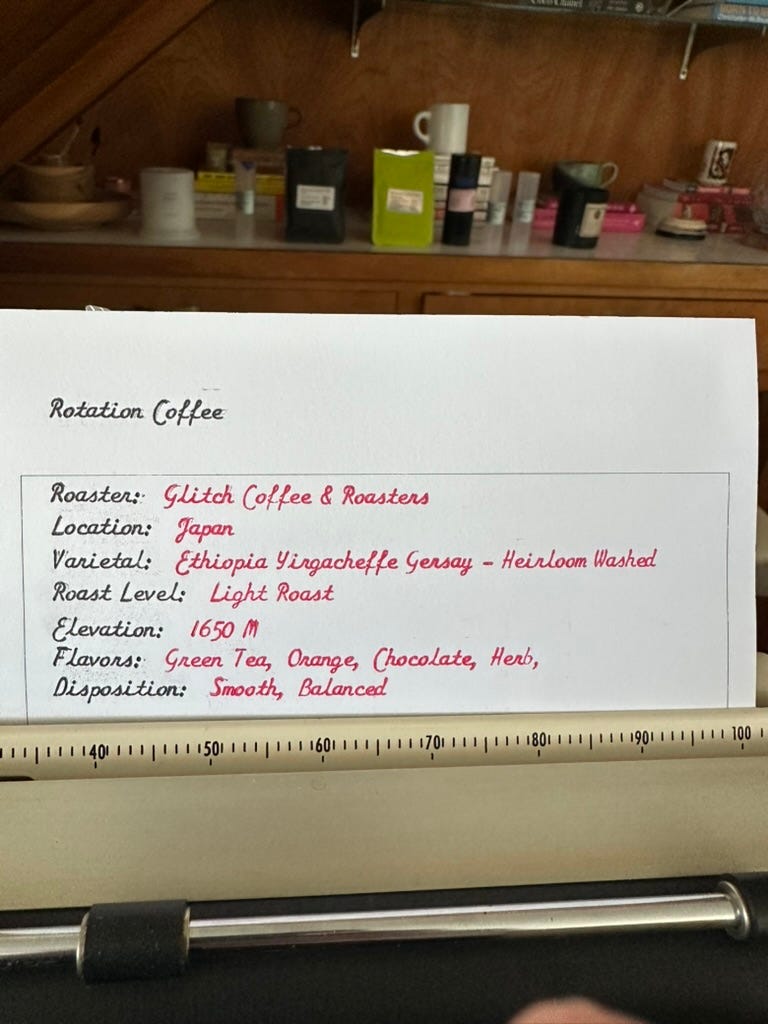 Rotation Coffee
Roaster: Glitch Coffee & Roasters
Location: Japan
Varietal: Ethiopia Yirgacheffe Gersay - Heirloom Washed
Roast Level: Light Roast
Elevation: 1650 M
Flavors: Green Tea, Orange, Chocolate, Herb,
Disposition: Smooth, Balanced
40 50 60 70 80 90 100